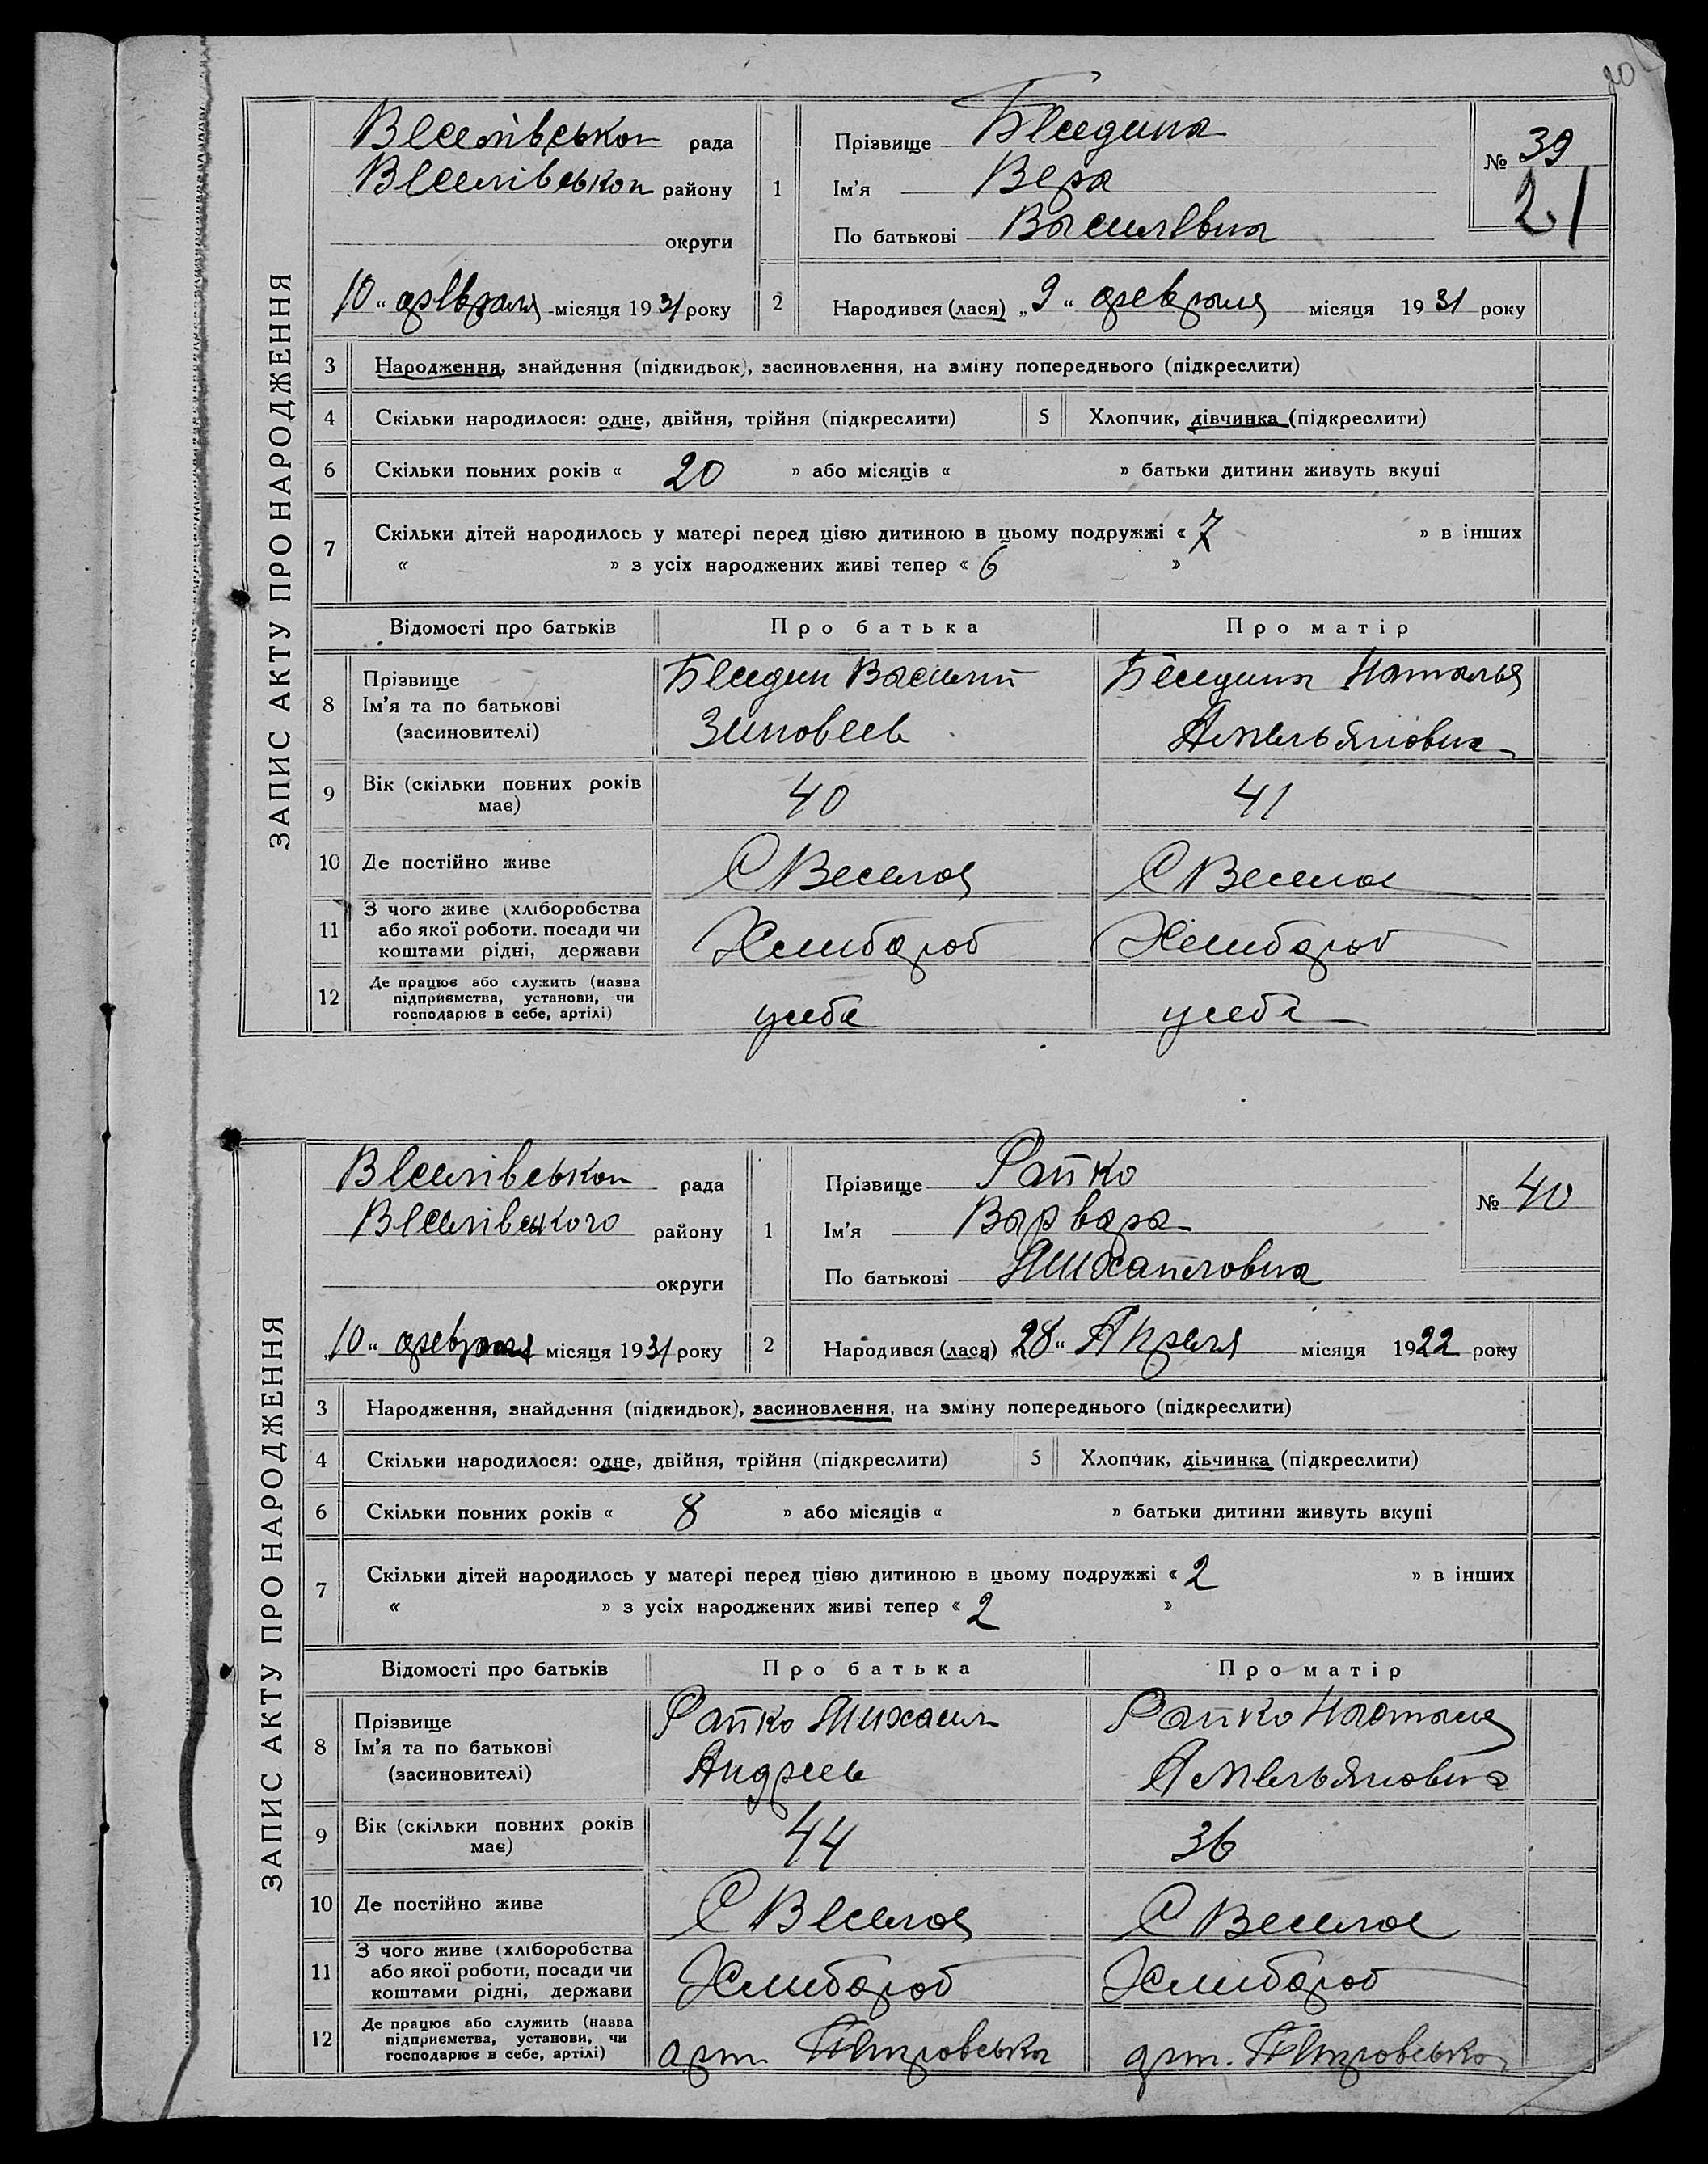 20
ЗАПИС АКТУ ПРО НАРОДЖЕННЯ
Веселівськои рада
Веселівськои району
округи
10 " февраля місяця 1931 року
1
Прізвище Беседина
Ім'я Вера
По батькові Василевна
№ 39
21
2 Народився (лася) „ 9 " февраля місяця 1931 року
3 Народження, знайдення (підкидьок), засиновлення, на зміну попереднього (підкреслити)
4 Скільки народилося: одне, двійня, трійня (підкреслити) 5 Хлопчик, дівчинка (підкреслити)
6 Скільки повних років « 20 » або місяців « » батьки дитини живуть вкупі
7 Скільки дітей народилось у матері перед цією дитиною в цьому подружжі « 7 » в інших
« » з усіх народжених живі тепер « 6 »
Відомості про батьків Про батька Про матір
8 Прізвище
Ім'я та по батькові
(засиновителі)
Беседин Василий
Зиновеев
Беседина Наталья
Амельяновна
9 Вік (скільки повних років
має)
40 41
10 Де постійно живе С Веселоя С Веселое
11 З чого живе (хліборобства
або якої роботи, посади чи
коштами рідні, держави
Хлибороб Хлибороб
12 Де працює або служить (назва
підприємства, установи, чи
господарює в себе, артілі)
усебе усебе
ЗАПИС АКТУ ПРО НАРОДЖЕННЯ
Веселівськои рада
Веселівського району
округи
„10 " февраля місяця 1931 року
1
Прізвище Рапко
Ім'я Варвара
По батькові Михайловна
№ 40
2 Народився (лася) 28 " Апреля місяця 1922 року
3 Народження, знайдення (підкидьок), засиновлення, на зміну попереднього (підкреслити)
4 Скільки народилося: одне, двійня, трійня (підкреслити) 5 Хлопчик, дівчинка (підкреслити)
6 Скільки повних років « 8 » або місяців « » батьки дитини живуть вкупі
7 Скільки дітей народилось у матері перед цією дитиною в цьому подружжі « 2 » в інших
« » з усіх народжених живі тепер « 2 »
Відомості про батьків Про батька Про матір
8 Прізвище
Ім'я та по батькові
(засиновителі)
Рапко Михаил
Андреев
Рапко Наталья
Амельяновна
9 Вік (скільки повних років
має)
44 36
10 Де постійно живе С Веселоя С Веселое
11 З чого живе (хліборобства
або якої роботи, посади чи
коштами рідні, держави
Хлибороб Хлибороб
12 Де працює або служить (назва
підприємства, установи, чи
господарює в себе, артілі)
арт. Петровсько арт. Петровсько